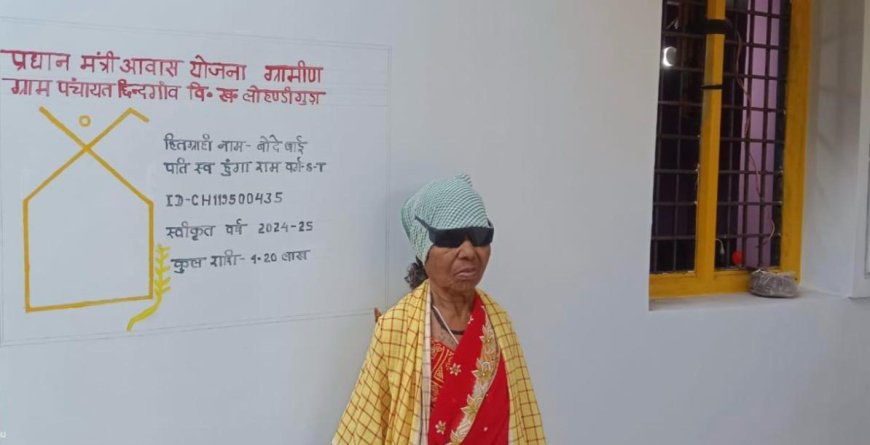 प्रधान मंत्री आवास योजना ग्रामीण
ग्राम पंचायत छिन्दगाँव वि॰ ख॰ लोहण्डीगुड़ा
हितग्राही नाम- बोदे बाई
पति स्व डुंगा राम वर्ग-S-T
ID-CH119500435
स्वीकृत वर्ष 2024-25
कुल राशि- 1.20 लाख